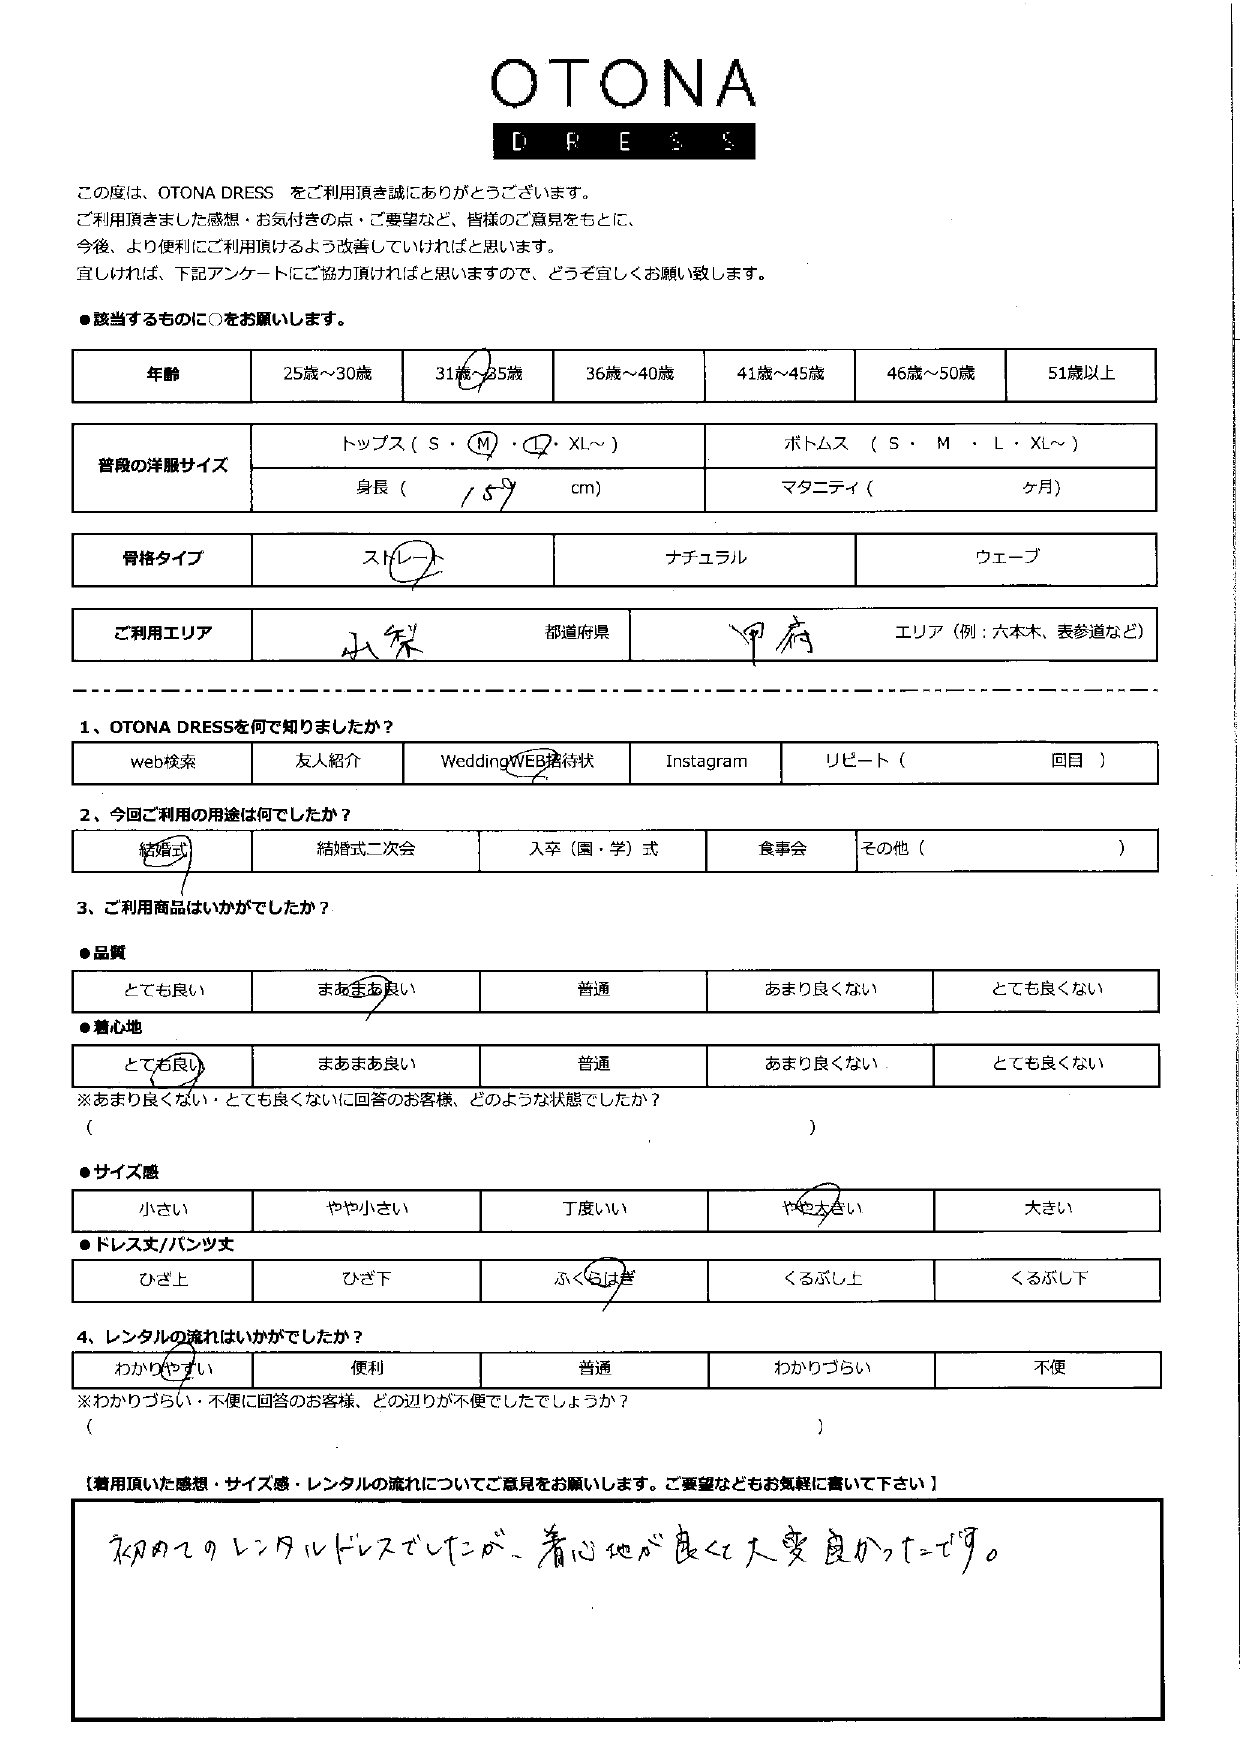 OTONA
DRESS
この度は、OTONA DRESS をご利用頂き誠にありがとうございます。
ご利用頂きました感想・お気付きの点・ご要望など、皆様のご意見をもとに、
今後、より便利にご利用頂けるよう改善していければと思います。
宜しければ、下記アンケートにご協力頂ければと思いますので、どうぞ宜しくお願い致します。
●該当するものに○をお願いします。
年齢 25歳～30歳 31歳～35歳 36歳～40歳 41歳～45歳 46歳～50歳 51歳以上
普段の洋服サイズ トップス ( S ・ M ・ L ・ XL～ ) ボトムス ( S ・ M ・ L ・ XL～ )
身長 ( 159 cm) マタニティ ( ケ月)
骨格タイプ ストレート ナチュラル ウェーブ
ご利用エリア 山梨 都道府県 甲府 エリア（例：六本木、表参道など）
1、OTONA DRESSを何で知りましたか？
web検索 友人紹介 WeddingWEB招待状 Instagram リピート（ 回目 ）
2、今回ご利用の用途は何でしたか？
結婚式 結婚式二次会 入卒（園・学）式 食事会 その他（ ）
3、ご利用商品はいかがでしたか？
●品質
とても良い まあまあ良い 普通 あまり良くない とても良くない
●着心地
とても良い まあまあ良い 普通 あまり良くない とても良くない
※あまり良くない・とても良くないに回答のお客様、どのような状態でしたか？
( )
●サイズ感
小さい やや小さい 丁度いい やや大きい 大きい
●ドレス丈/パンツ丈
ひざ上 ひざ下 ふくらはぎ くるぶし上 くるぶし下
4、レンタルの流れはいかがでしたか？
わかりやすい 便利 普通 わかりづらい 不便
※わかりづらい・不便に回答のお客様、どの辺りが不便でしたでしょうか？
( )
【着用頂いた感想・サイズ感・レンタルの流れについてご意見をお願いします。ご要望などもお気軽に書いて下さい】
初めてのレンタルドレスでしたが、着心地が良くて大変良かったです。